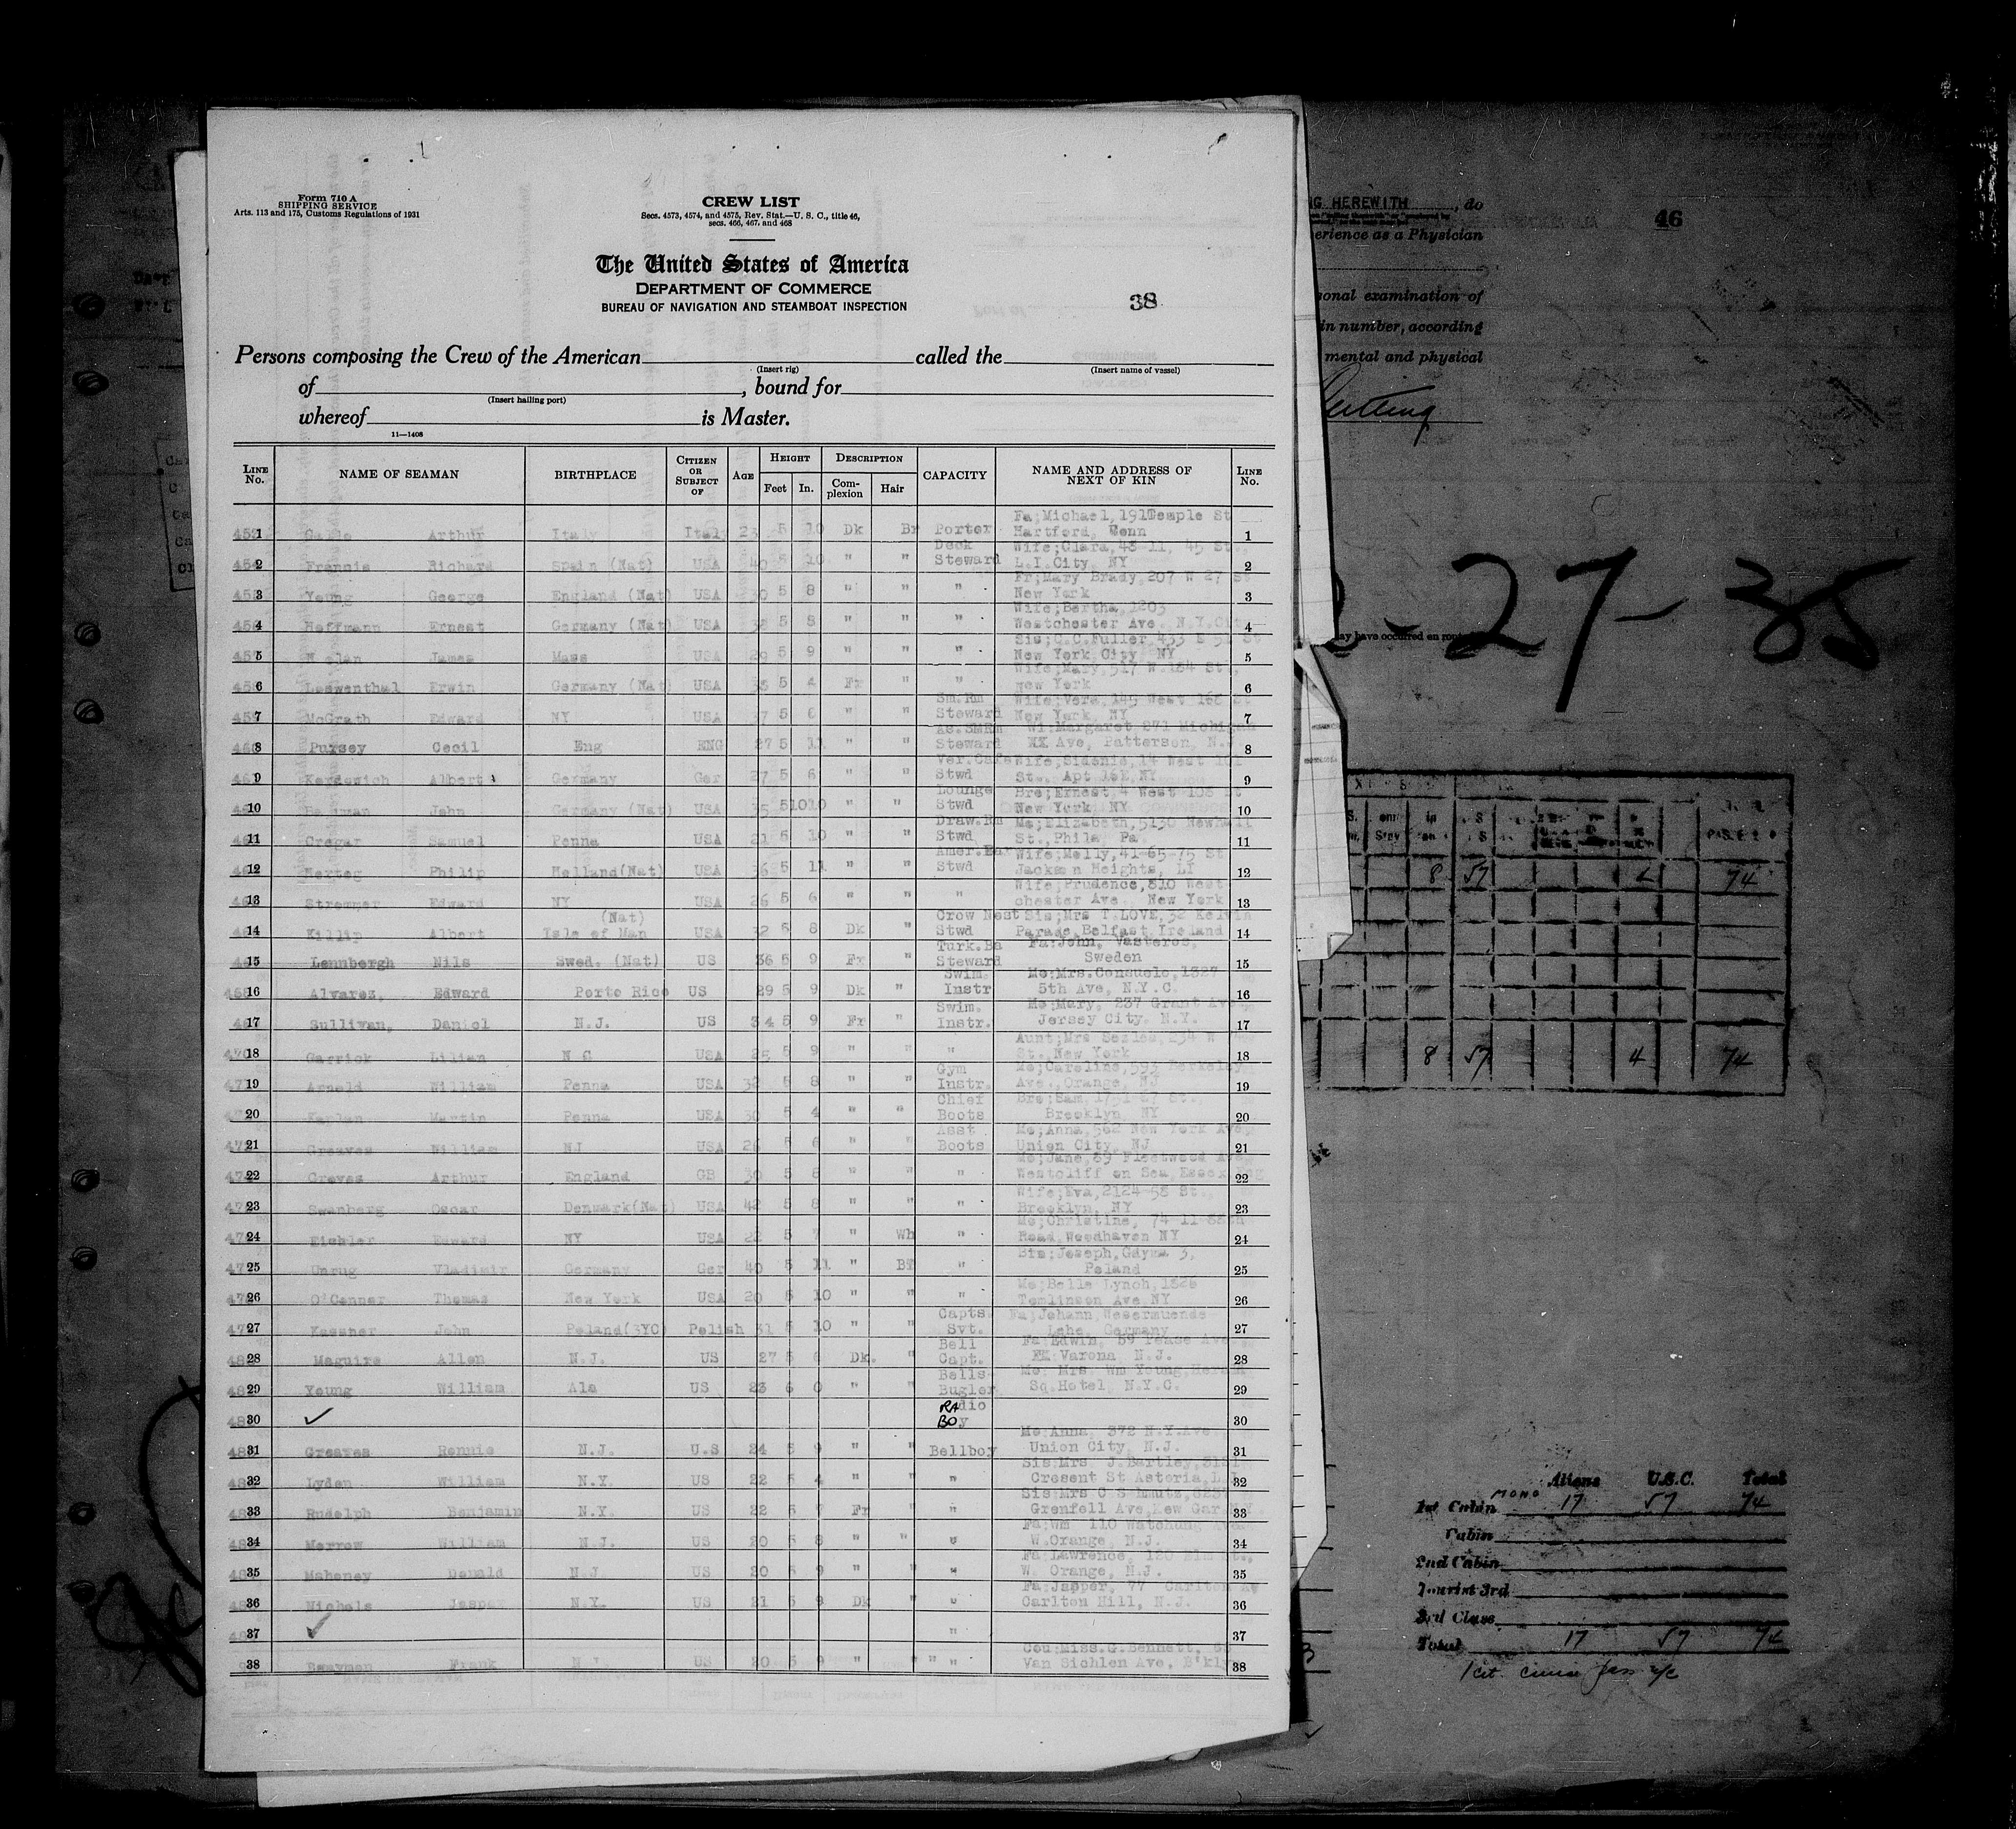 Form 710 A
SHIPPING SERVICE
Arts. 113 and 175, Customs Regulations of 1931
CREW LIST
Secs. 4573, 4574, and 4575, Rev. Stat.—U. S. C., title 46,
secs. 466, 467, and 468
The United States of America
DEPARTMENT OF COMMERCE
BUREAU OF NAVIGATION AND STEAMBOAT INSPECTION
38
Persons composing the Crew of the American called the
(Insert rig) (Insert name of vessel)
of , bound for
(Insert hailing port)
whereof is Master.
11—1408
LINE No. NAME OF SEAMAN BIRTHPLACE CITIZEN OR SUBJECT OF AGE HEIGHT Feet In. DESCRIPTION Complexion Hair CAPACITY NAME AND ADDRESS OF NEXT OF KIN LINE No.
Fa;Michael,191Temple St
1 Arthur Italy Italy 23 5 10 Dk Br Porter Hartford, Conn 1
Deck Wife;Clara,48-11, 45 St.,
2 Francis Richard Spain (Nat) USA 40 5 10 " " Steward L.I.City, NY 2
Fr;Mary Brady,207 W 27 St
3 Young George England (Nat) USA 30 5 8 " " " New York 3
Wife;Bertha,1203
4 Hoffmann Ernest Germany (Nat) USA 5 8 " " " Westchester Ave. N.Y.City 4
Sis;C.C.Fuller,433 E 51 St
5 Nolan James Mass USA 29 5 9 " " " New York City, NY 5
Wife;Mary,517 W.184 St.,
6 Loewenthal Erwin Germany (Nat) USA 38 5 4 Fr " " New York 6
Sm.Rm Wife;Vera,149 West 168 St
7 McGrath Edward NY USA 37 5 6 " " Steward New York, NY 7
As.SmRm Wi:Margaret 271 Michigan
8 Pursey Cecil Eng ENG 27 5 11 " " Steward Ave, Patterson, N.J 8
Ver.Cafe Wife,Sidonie,14 West 101
9 Albert Germany Ger 27 5 6 " " Stwd St., Apt 16E,NY 9
Lounge Bro;Ernest,4 West 108 St
10 John Germany (Nat) USA 35 51010 " " Stwd New York, NY 10
Draw.Rm Mo;Elizabeth,5130 Newhall
11 Cregar Samuel Penna USA 21 5 10 " " Stwd St.,Phila Pa. 11
Amer.Bar Wife;Melly,41-65-75 St
12 Hertog Philip Holland(Nat) USA 36 5 11 " " Stwd Jackson Heights, LI 12
Wife;Prudence,810 West-
13 Stremmer Edward NY USA 26 5 6 " " " chester Ave., New York 13
(Nat) Crow Nest Sis;Mrs T.LOVE,32 Kelvin
14 Killip Albert Isle of Man USA 32 6 8 Dk " Stwd Parade,Belfast,Ireland 14
Turk.Ba Fa:John, Vasteros,
15 Lennbergh Nils Swed. (Nat) US 36 5 9 Fr " Steward Sweden 15
Swim. Mo:Mrs.Consuelo,1327
16 Alvarez, Edward Porto Rico US 29 5 9 Dk " Instr 5th Ave, N.Y.C. 16
Swim. Mo;Mary, 237 Grant Ave
17 Sullivan, Daniel N.J. US 34 5 9 Fr " Instr. Jersey City, N.Y. 17
Aunt;Mrs 234 W
18 Garrick Lilian N C USA 25 5 9 " " " St.,New York 18
Gym Mo;Caroline,593 Berkeley
19 Arnold William Penna USA 32 5 8 " " Instr. Ave.,Orange, NJ 19
Chief Bro;Sam,1751 67 St.,
20 Kaplan Martin Penna USA 30 5 4 " " Boots Brooklyn, NY 20
Asst Mo;Anna,562 New York Ave.
21 Greaves William NJ USA 26 5 6 " " Boots Union City, NJ 21
Mo;Jane,89 Fleetwood Ave
22 Graves Arthur England GB 30 5 8 " " " Westcliff on Sea,Essex,Eng 22
Wife;Eva,2124-58 St.,
23 Swanberg Oscar Denmark(Nat) USA 42 5 8 " " " Brooklyn, NY 23
Mo;Christine, 74-11-88th
24 Eichler Edward NY USA 22 5 7 " Wh " Road,Woodhaven NY 24
Bis;Joseph,Gdyna 3,
25 Unrug Vladimir Germany Ger 40 5 11 " Br " Poland 25
Mo;Belle Lynch,1826
26 O'Conner Thomas New York USA 20 5 10 " " " Tomlinson Ave NY 26
Capts. Fa;Johann,Wesermuende
27 Kassner John Poland(3YO) Polish 31 5 10 " " Svt. Lehe, Germany 27
Bell Fa Edwin, 59 Pease Ave
28 Maguire Allen N.J. US 27 5 6 Dk. " Capt. Varona, N.J. 28
Bells- Mo: Mrs. Wm Young,Herald
29 Young William Ala US 23 6 0 " " Bugler Sq.Hotel, N.Y.C. 29
RAdio
30 ✓ BOy 30
Mo Anna, 372 N.Y.Ave
31 Greaves Rennie N.J. U.S 24 5 9 " " Bellboy Union City, N.J. 31
Sis Mrs. J.Bartley,
32 Lyden William N.Y. US 22 5 4 " " " Cresent St Astoria,L.I 32
Sis Mrs C Schmutz,
33 Rudolph Benjamin N.Y. US 22 5 7 Fr " Grenfell Ave,Kew Gar N.Y. 33
Fa:Wm 110 Watchung Ave.
34 Morrow William N.J. US 20 5 8 " " " W.Orange, N.J. 34
Fa Lawrence, 120 Elm St.,
35 Mahoney Donald N.J. US 20 5 9 " " " W. Orange, N.J. 35
Fa:Japper, 77 Carlton Av
36 Nichols Jasper N.Y. US 21 5 9 Dk " " Carlton Hill, N.J. 36
37 ✓ " 37
Cou:Miss.G.Bennett,
38 Frank N J US 20 5 9 " " " Van Sichlen Ave, B'klyn 38
HEREWITH , do
46
erience as a Physician
sonal examination of
in number, according
mental and physical
27- 35
may have occurred en rout
8 57 74
8 57 4 74
Aliens U.S.C. Total
1st Cabin MONO 17 57 74
Cabin
2nd Cabin
Tourist 3rd
3rd Class
Total 17 57 74